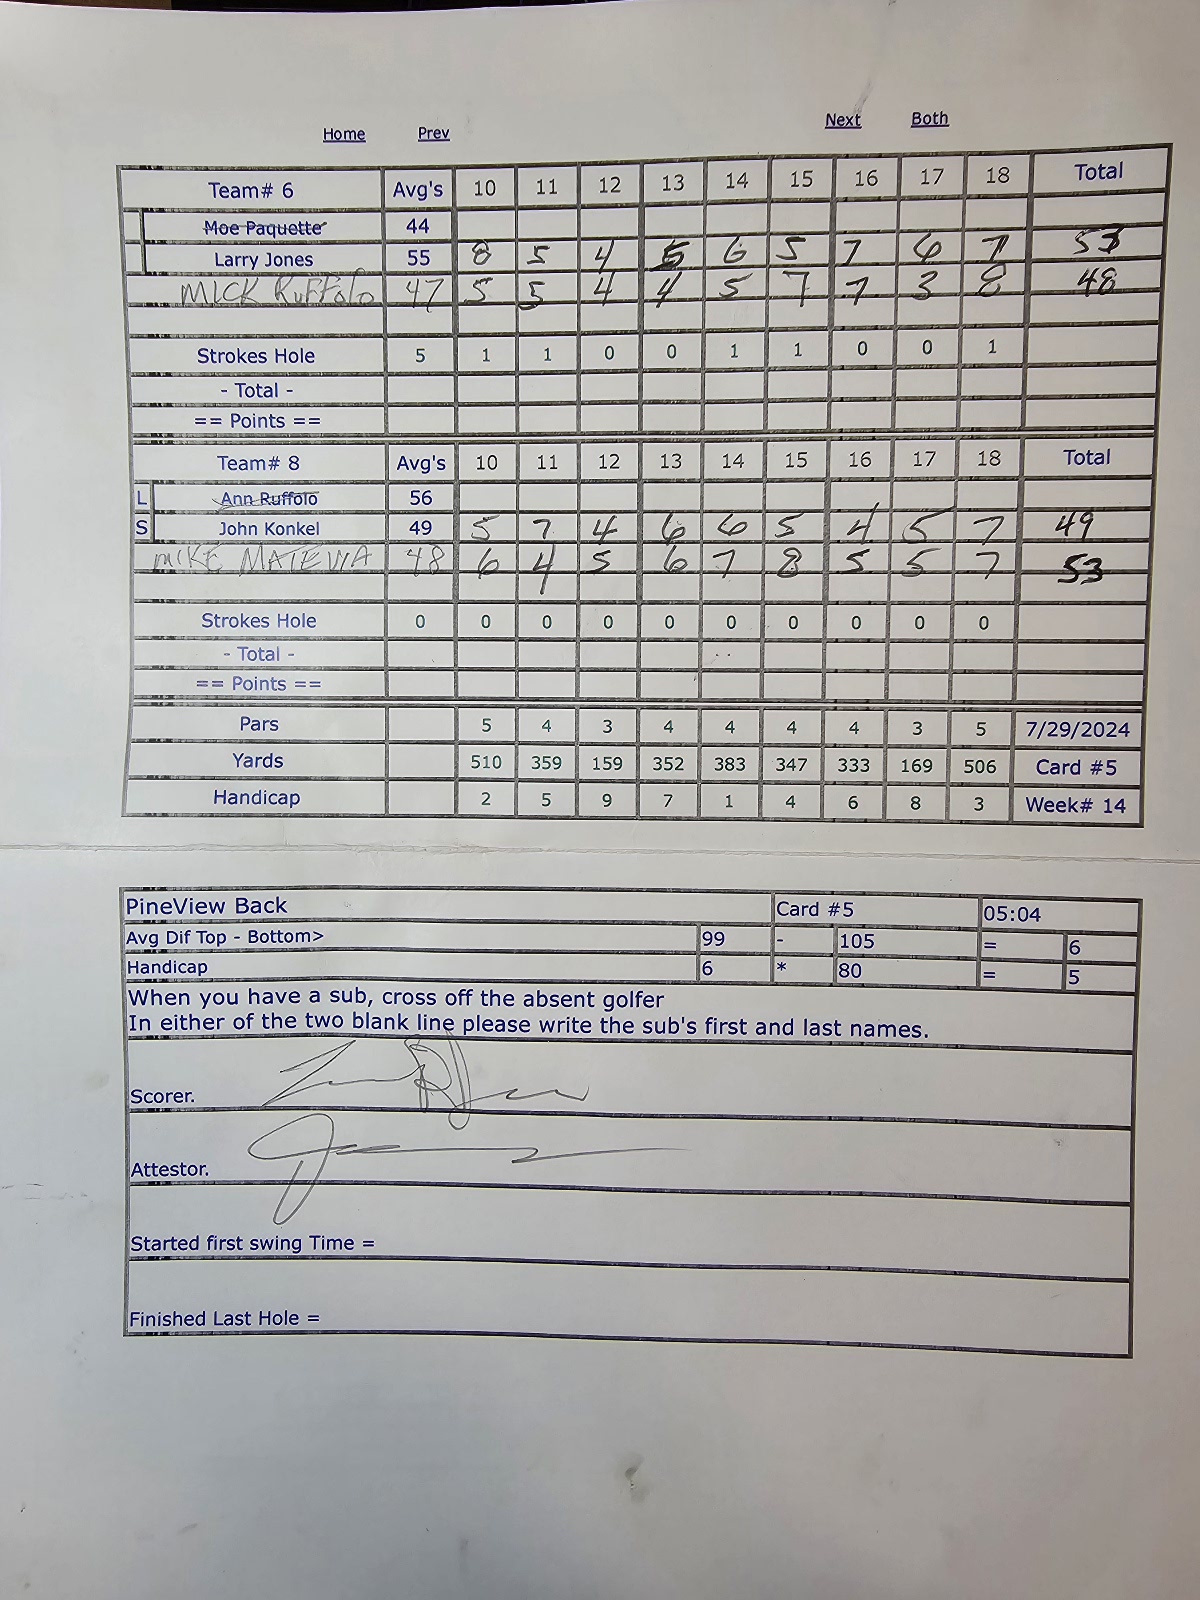 Home Prev Next Both
Team# 6 Avg's 10 11 12 13 14 15 16 17 18 Total
Moe Paquette 44
Larry Jones 55 8 5 4 5 6 5 7 6 7 53
MICK Ruffolo 47 5 5 4 4 5 7 7 3 8 48
Strokes Hole 5 1 1 0 0 1 1 0 0 1
- Total -
== Points ==
Team# 8 Avg's 10 11 12 13 14 15 16 17 18 Total
L Ann Ruffolo 56
S John Konkel 49 5 7 4 6 6 5 4 5 7 49
MIKE MATEWA 48 6 4 5 6 7 8 5 5 7 53
Strokes Hole 0 0 0 0 0 0 0 0 0 0
- Total -
== Points ==
Pars 5 4 3 4 4 4 4 3 5 7/29/2024
Yards 510 359 159 352 383 347 333 169 506 Card #5
Handicap 2 5 9 7 1 4 6 8 3 Week# 14
PineView Back Card #5 05:04
Avg Dif Top - Bottom> 99 - 105 = 6
Handicap 6 * 80 = 5
When you have a sub, cross off the absent golfer
In either of the two blank line please write the sub's first and last names.
Scorer.
Attestor.
Started first swing Time =
Finished Last Hole =